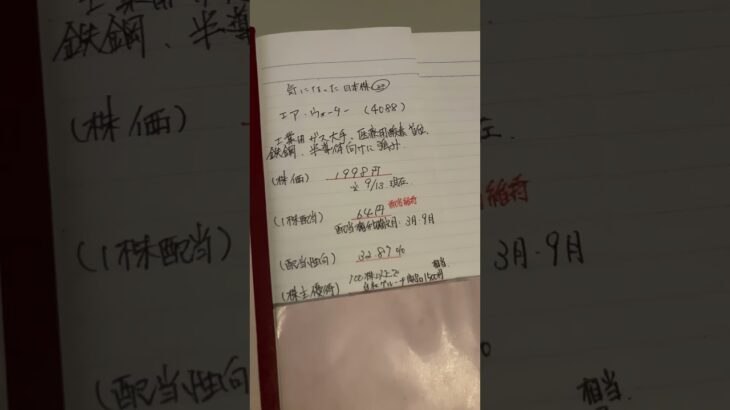 気になった日本株⑳
エア・ウォーター (4088)
工業用ガス大手、医療用酸素首位、
鉄鋼、半導体向けに強み
(株価) 1998円
※ 9/13 現在
(1株配当) 64円 配当維持
配当権利確定月 3月・9月
(配当性向) 32.87%
(株主優待) 100株以上で 相当
自社グループ商品1500円